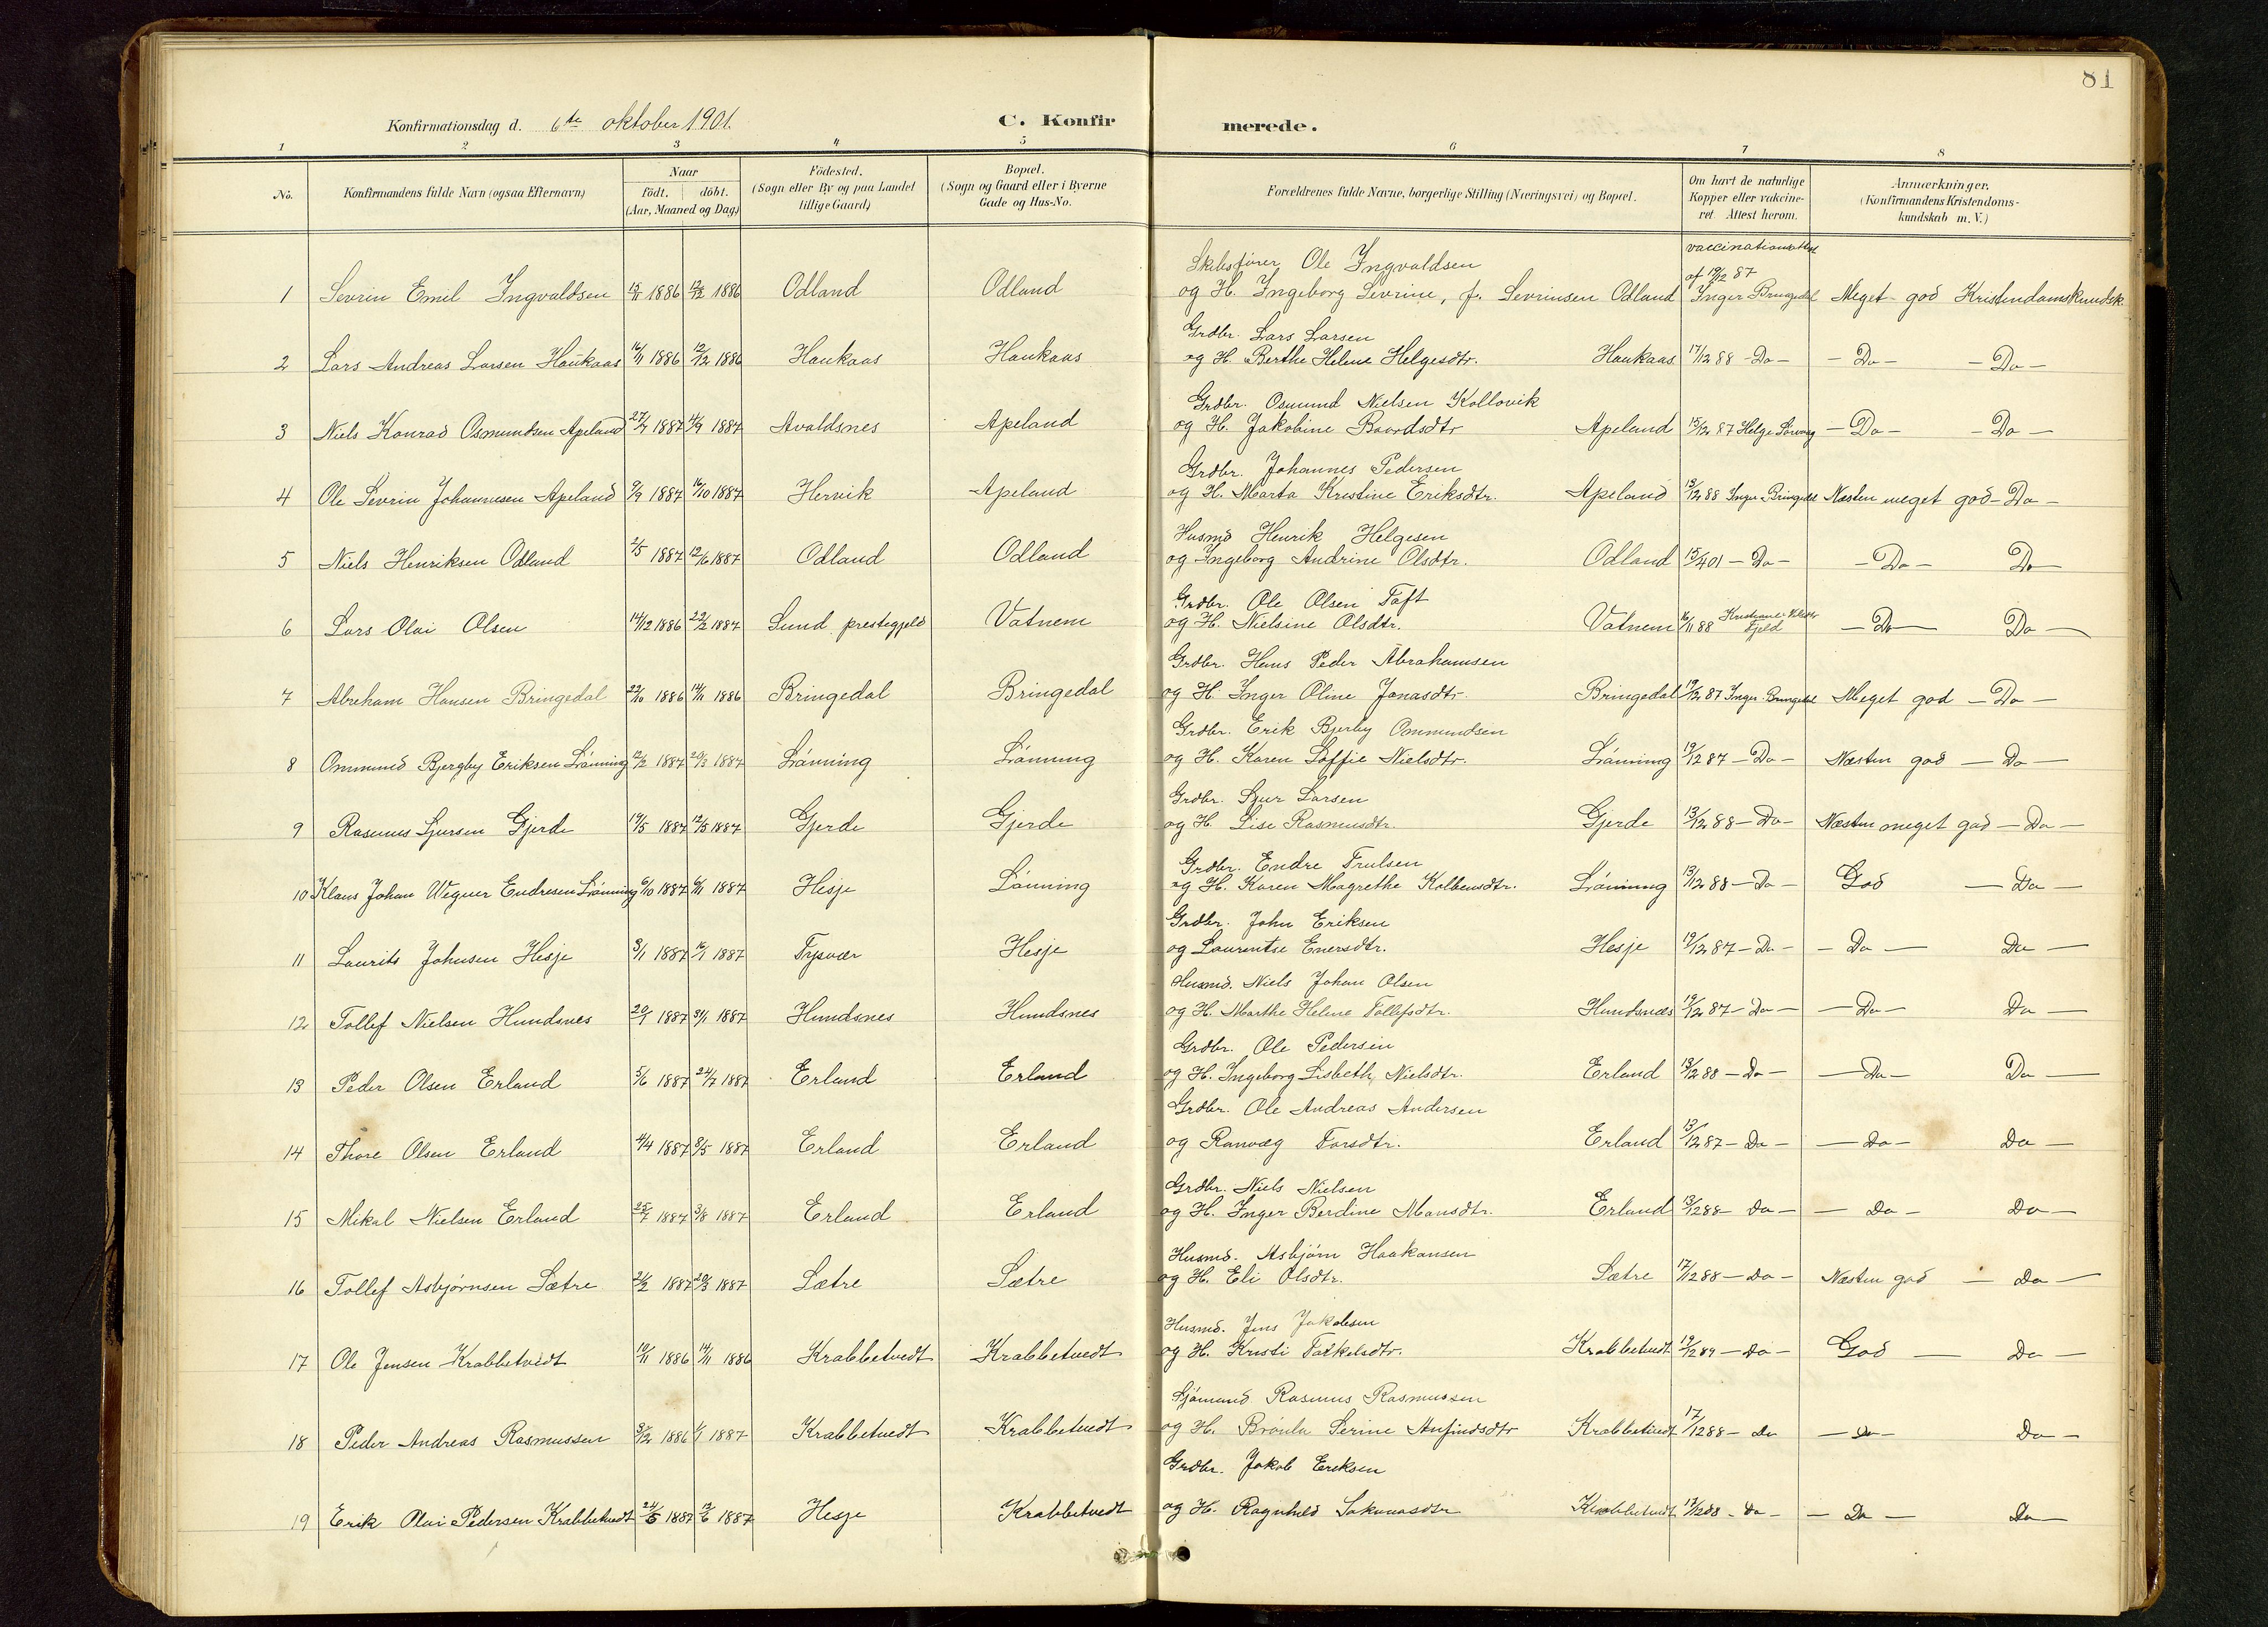 81
Konfirmationsdag d. 6te oktober 1901.
C. Konfirmerede.
1 2 3 4 5 6 7 8
No.
Konfirmandens fulde Navn (ogsaa Efternavn)
Naar
födt. döbt.
(Aar, Maaned og Dag)
Födested.
(Sogn eller By og paa Landet
tillige Gaard)
Bopæl.
(Sogn og Gaard eller i Byerne
Gade og Hus-No.
Forældrenes fulde Navne, borgerlige Stilling (Næringsvei) og Bopæl.
Om havt de naturlige
Kopper eller vakcine-
ret. Attest herom.
Anmærkninger.
(Konfirmandens Kristendoms-
kundskab m. V.)
Skibsfører Ole Ingvaldsen vaccinationsattest
af 19/12 87
1 Sevrin Emil Ingvaldsen 15/11 1886 12/12 1886 Odland Odland og H. Ingeborg Sevrine, f. Sevrinsen Odland Inger Bringedal Meget god Kristendomskundsk.
Grdbr. Lars Larsen
2 Lars Andreas Larsen Haukaas 16/11 1886 12/12 1886 Haukaas Haukaas og H. Berthe Helene Helgesdtr. Haukaas 17/12 88 - Do - - Do - - Do -
Grdbr. Osmund Nielsen Kollovik
3 Niels Konrad Osmundsen Apeland 27/7 1887 4/9 1887 Avaldsnes Apeland og H. Jakobine Baardsdtr Apeland 15/12 87 Helge - Do - - Do -
Grdbr. Johannes Pedersen
4 Ole Sevrin Johannesen Apeland 9/9 1887 16/10 1887 Hervik Apeland og H. Marta Kristine Eriksdtr. Apeland 13/12 88 Inger Bringedal Næsten meget god - Do -
Husmd Henrik Helgesen
5 Niels Henriksen Odland 2/5 1887 12/6 1887 Odland Odland og Ingeborg Andrine Olsdtr. Odland 15/4 01 - Do - - Do - Do
Grdbr. Ole Olsen Toft
6 Lars Olai Olsen 14/12 1886 22/2 1887 Sund prestegjeld Vatnem og H. Nielsine Olsdtr. Vatnem 16/11 88 Fjeld - Do - Do -
Grdbr. Hans Peder Abrahamsen
7 Abraham Hansen Bringedal 22/10 1886 14/11 1886 Bringedal Bringedal og H. Inger Oline Jonasdtr. Bringedal 19/12 87 Inger Bringedal Meget god - Do -
Grdbr. Erik Bjerby Ommundsen
8 Ommund Bjergby Eriksen Lönning 12/2 1887 20/3 1887 Lönning Lönning og H. Karen Soffie Nielsdtr. Lönning 19/12 87 - Do - Næsten god - Do -
Grdbr. Sjur Larsen
9 Rasmus Sjursen Gjerde 1887 1887 Gjerde Gjerde og H. Lise Rasmusdtr. Gjerde 13/12 88 - Do - Næsten meget god - Do -
Grdbr. Endre Trulsen
10 Klaus Johan Wegner Endresen Lönning 6/10 1887 6/11 1887 Hesje Lönning og H. Karen Magrethe Kolbensdtr. Lönning 13/12 88 - Do - God - Do -
Grdbr. John Eriksen
11 Laurits Johnsen Hesje 3/1 1887 16/1 1887 Tysvær Hesje og Laurentse Enersdtr. Hesje 19/12 87 - Do - - Do - Do -
Husmd. Niels Johan Olsen
12 Tollef Nielsen Hundsnes 20/1 1887 31/1 1887 Hundsnes Hundsnes og H. Marthe Helene Tollefsdtr. Hundsnæs 19/12 87 - Do - - Do - Do -
Grdbr. Ole Pedersen
13 Peder Olsen Erland 5/6 1887 24/7 1887 Erland Erland og H. Ingeborg Lisbeth Nielsdtr. Erland 13/12 88 - Do - - Do - Do -
Grdbr. Ole Andreas Andersen
14 Thore Olsen Erland 4/4 1887 8/5 1887 Erland Erland og Ranvæg Torsdtr. Erland 13/12 87 - Do - - Do - Do -
Grdbr. Niels Nielsen
15 Mikal Nielsen Erland 25/7 1887 3/8 1887 Erland Erland og H. Inger Berdine Monsdtr. Erland 13/12 88 - Do - - Do - Do -
Husmd. Asbjörn Haakonsen
16 Tollef Asbjörnsen Sætre 21/2 1887 20/3 1887 Sætre Sætre og H. Eli Olsdtr. Sætre 17/12 88 - Do - Næsten god - Do -
Husmd. Jens Jakobsen
17 Ole Jensen Krabbetvedt 10/11 1886 14/11 1886 Krabbetvedt Krabbetvedt og H. Kristi Torkelsdtr. Krabbetvedt 19/12 89 - Do - God - Do -
Sjömand Rasmus Rasmussen
18 Peder Andreas Rasmussen 1886 1/1 1887 Krabbetvedt Krabbetvedt og H. Serine Anfindsdtr Krabbetvedt 17/12 88 - Do - Do - Do -
Grdbr. Jakob Eriksen
19 Erik Olai Pedersen Krabbetvedt 24/5 1887 12/6 1887 Hesje Krabbetvedt og H. Ragnhild Krabbetvedt 17/12 88 - Do - - Do - Do